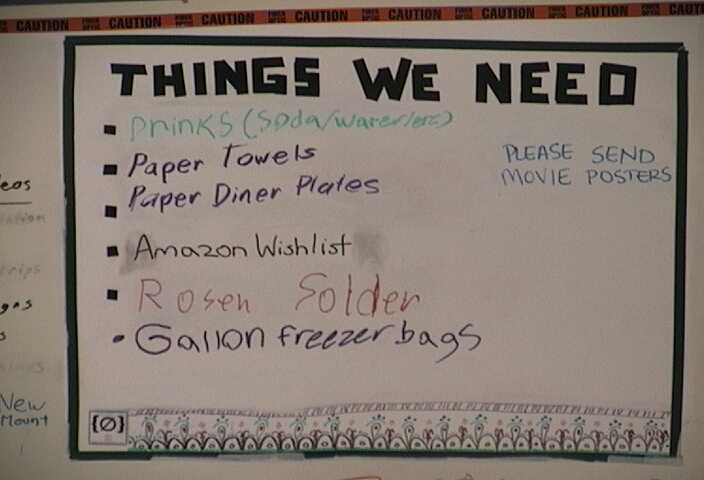 CAUTION CAUTION CAUTION CAUTION CAUTION CAUTION CAUTION CAUTION
THINGS WE NEED
Drinks (Soda/water/etc)
Paper Towels
Paper Diner Plates
Amazon Wishlist
Rosen Solder
Gallon freezer bags
PLEASE SEND
MOVIE POSTERS
{Ø}
eos
New
Mount